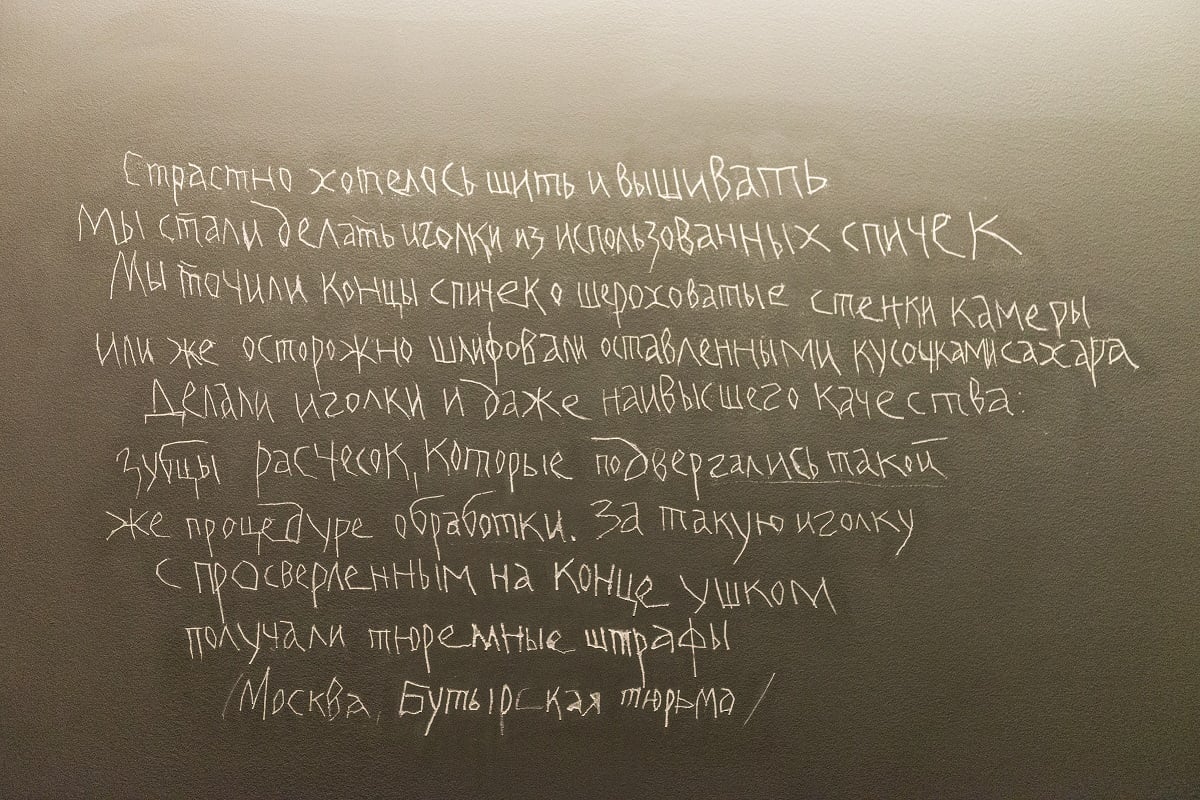 Страстно хотелось шить и вышивать
Мы стали делать иголки из использованных спичек
Мы точили концы спичек о шероховатые стенки камеры
или же осторожно шлифовали оставленными кусочками сахара
Делали иголки и даже наивысшего качества:
зубцы расчесок, которые подвергались такой
же процедуре обработки. За такую иголку
с просверленным на конце ушком
получали тюремные штрафы
/Москва, Бутырская тюрьма/